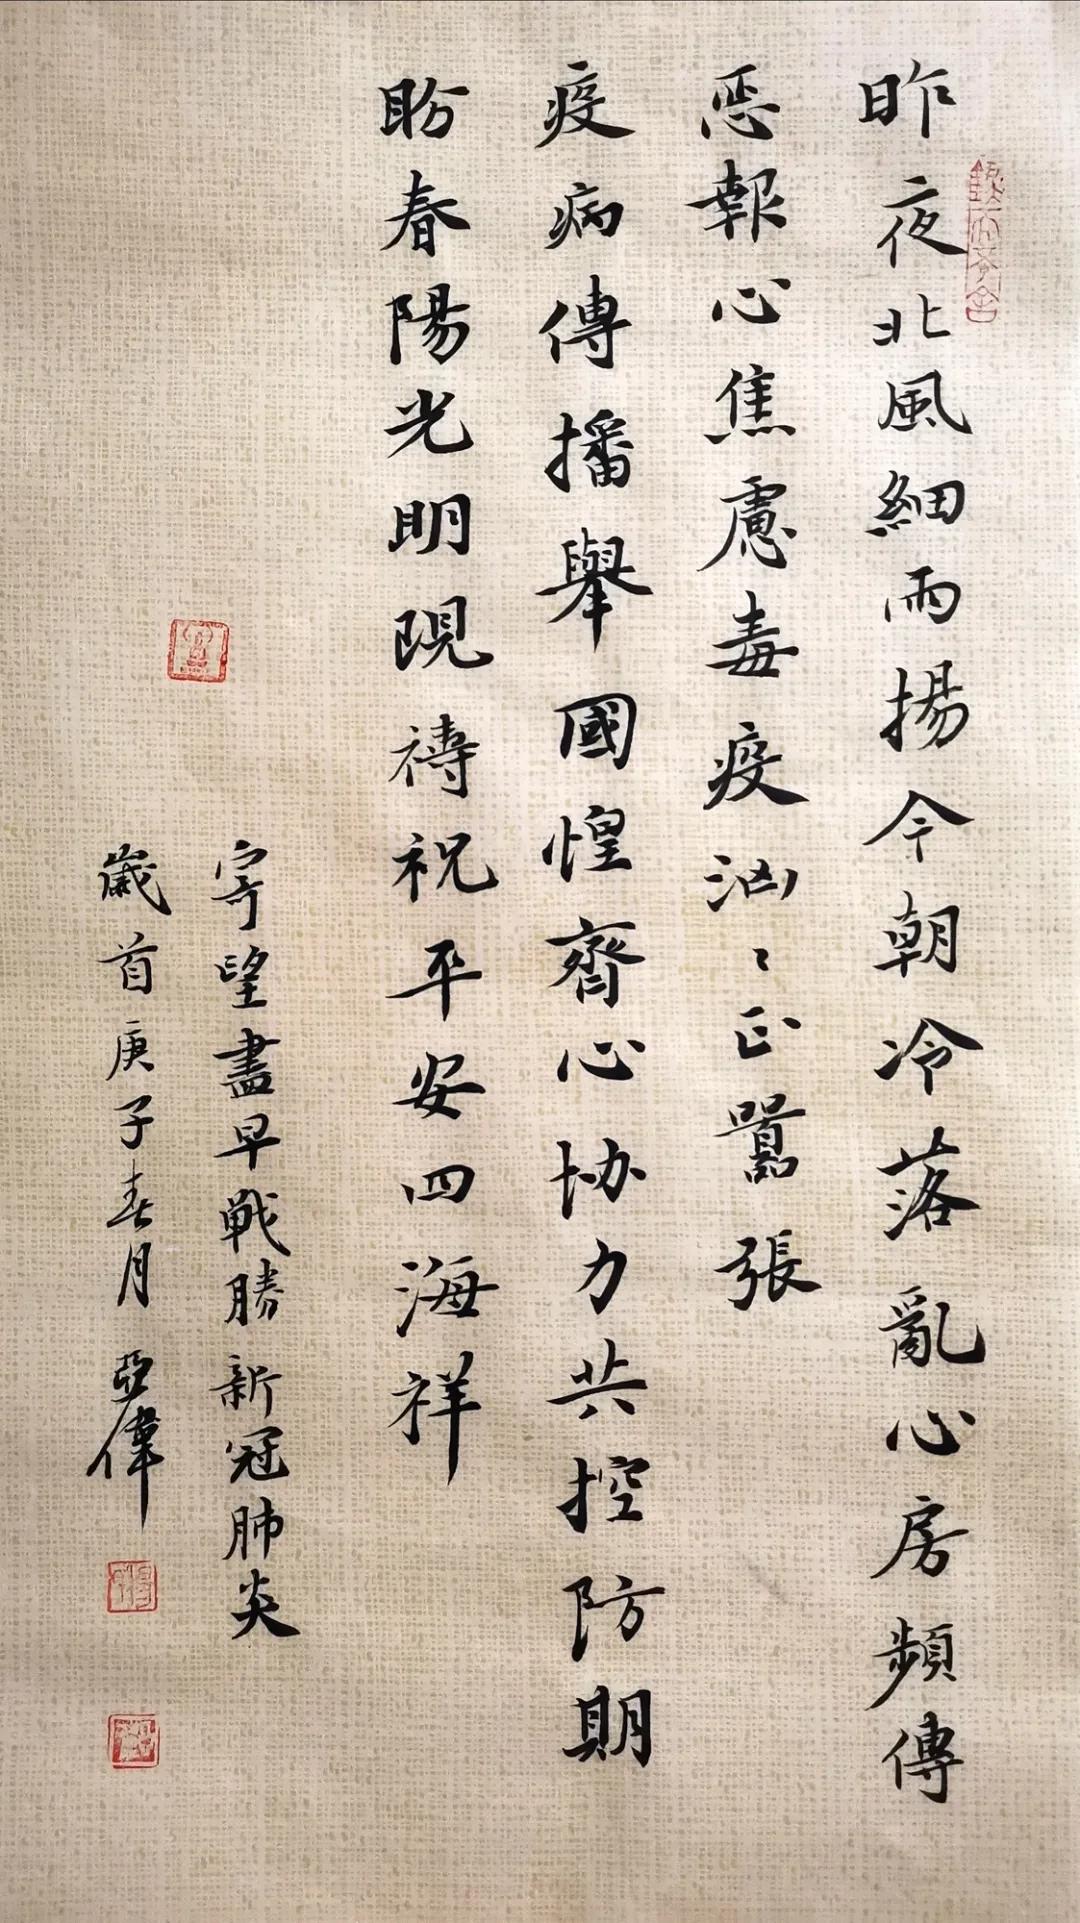 昨夜北風細雨揚今朝冷落亂心房頻傳
惡報心焦慮毒疫汹〻正囂張
疫病傳播舉國惶齊心協力共控防期
盼春陽光明現禱祝平安四海祥
寄望盡早戰勝新冠肺炎
歲首庚子春月亞偉